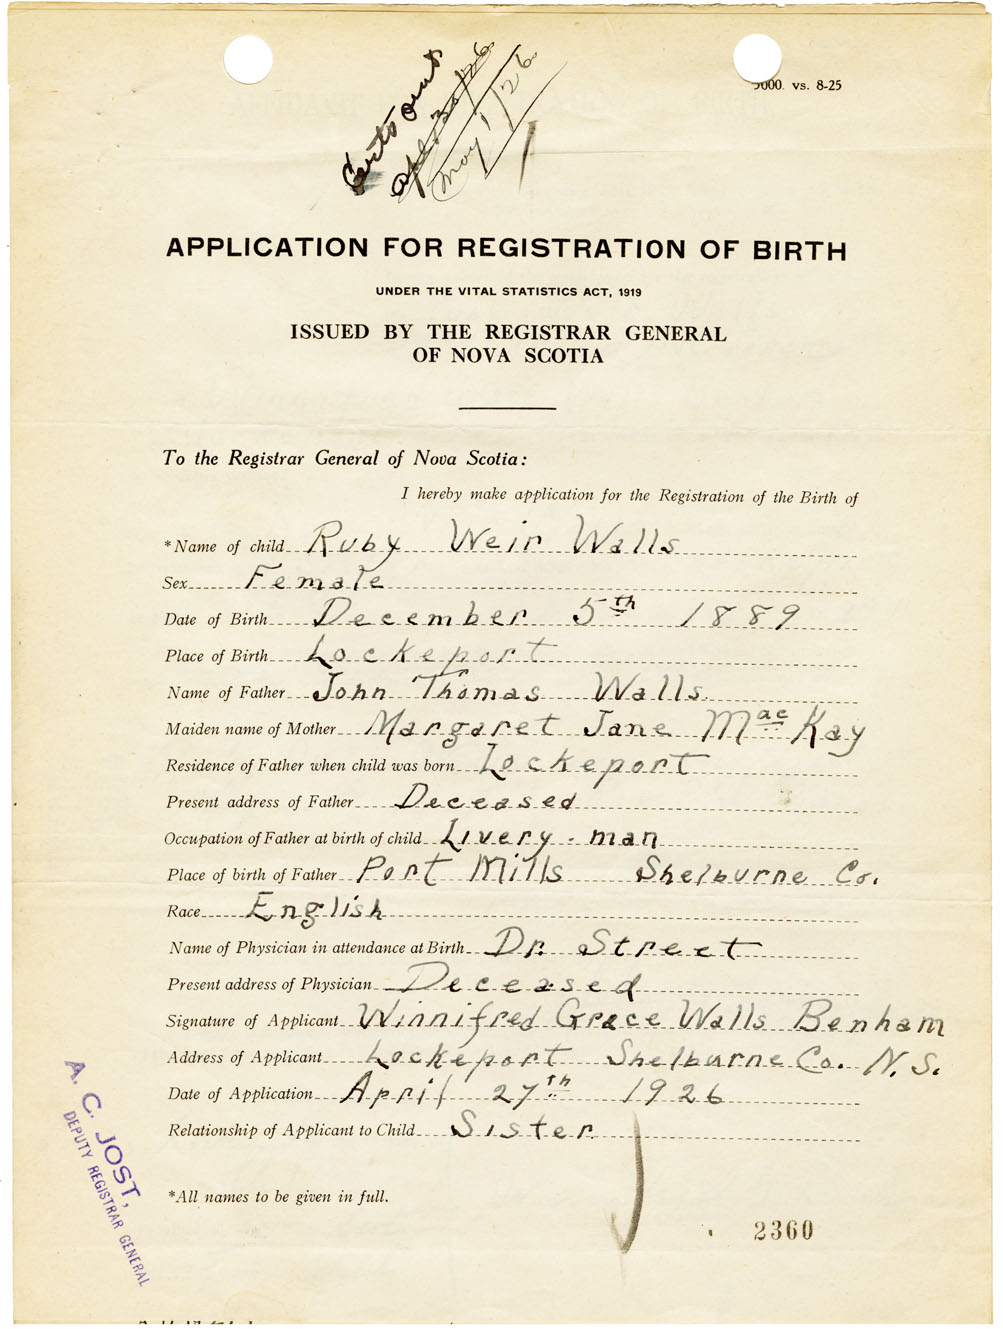 Certs out
Apl. 30/26
May 1/26
000. vs. 8-25
APPLICATION FOR REGISTRATION OF BIRTH
UNDER THE VITAL STATISTICS ACT, 1919
ISSUED BY THE REGISTRAR GENERAL
OF NOVA SCOTIA
To the Registrar General of Nova Scotia:
I hereby make application for the Registration of the Birth of
*Name of child Ruby Weir Walls
Sex Female
Date of Birth December 5th 1889
Place of Birth Lockeport
Name of Father John Thomas Walls
Maiden name of Mother Margaret Jane MacKay
Residence of Father when child was born Lockeport
Present address of Father Deceased
Occupation of Father at birth of child Livery-man
Place of birth of Father Port Mills Shelburne Co.
Race English
Name of Physician in attendance at Birth Dr. Street
Present address of Physician Deceased
Signature of Applicant Winnifred Grace Walls Benham
Address of Applicant Lockeport Shelburne Co. N.S.
Date of Application April 27th 1926
Relationship of Applicant to Child Sister
*All names to be given in full.
2360
A. C. JOST,
DEPUTY REGISTRAR GENERAL